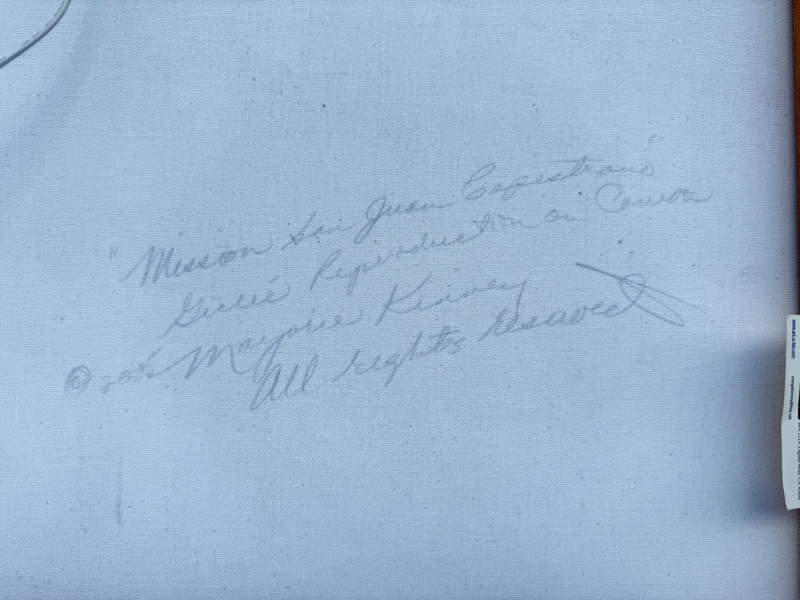 "Mission San Juan Capistrano"
Giclée Reproduction on Canvas
© Marjorie Kinney
All rights reserved